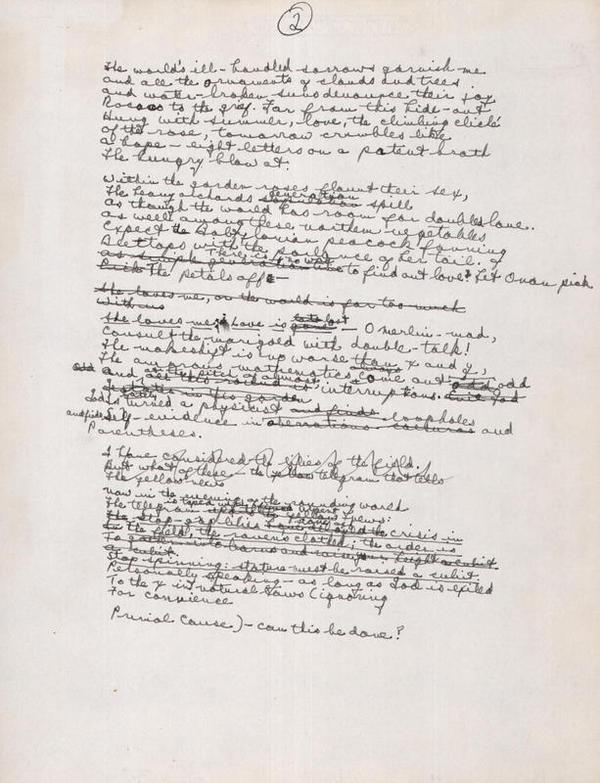 2
The world's ill-handled sorrows garnish me
and all the ornaments of clouds and trees
and water-broken suns denounce their joy
Rococo to the grief. Far from this hide-out
Hung with summer, love, the climbing cliché
of the rose, tomorrow crumbles like
a hope - eight letters on a patent broth
The hungry blow at.
Within the garden roses flaunt their sex,
The heavy orchards generation spill
As though the world has room for doubled love.
as well among these northern vegetables
Expect the Babylonian peacock fanning
Beettops with the of her tail. I
There is no way to find out love? Let Onan pick
The petals off -
She loves me, or the world is far too much
with us
She loves me; Love is lost — O merlin-mad,
consult the marigold with double-talk!
The makeshift is no worse than x and y,
The amorous mathematics always come out odd
and interruptions.
in his garden
God is turned a physicist and finds loopholes
and finds Self-evidence in and
Parentheses.
I have considered the lilies of the field.
But what of these - the yellow telegram that tells
The yellow news
now in the evening of the rounding world
The telegram news:
The stop-gap lilies crisis in
In the field, the raven's clothed; the order is
To gather into barns and
a cubit.
Stop spinning: stature must be raised a cubit.
Perpetually speaking - as long as God is exiled
To the x in natural laws (ignoring
For convience
Primal Cause) - can this be done?